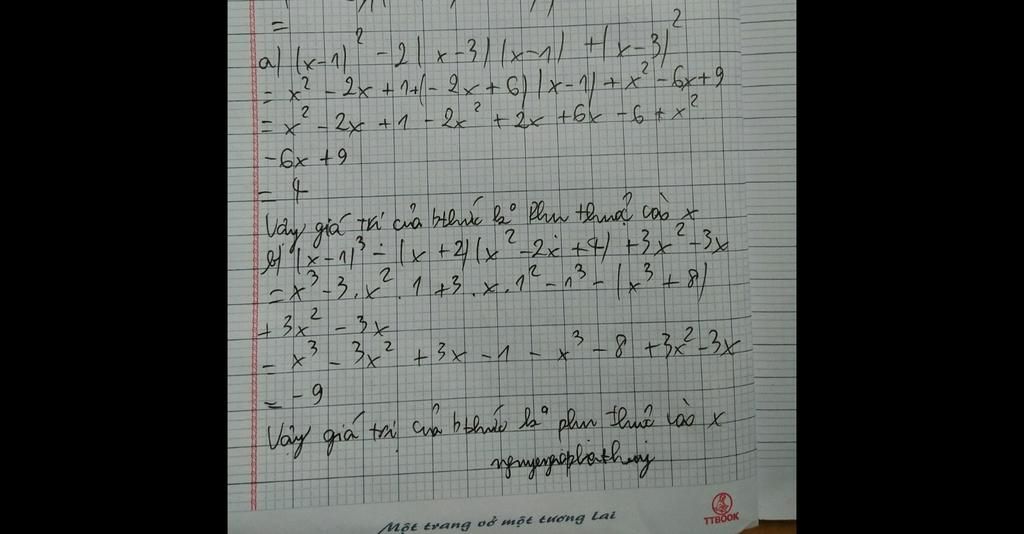 =
a) (x-1)² - 2(x-3)(x-1) + (x-3)²
= x² - 2x + 1 + (-2x + 6)(x-1) + x² - 6x + 9
= x² - 2x + 1 - 2x² + 2x + 6x - 6 + x²
- 6x + 9
= 4
Vậy giá trị của bthức k° phụ thuộc vào x
b) (x-1)³ - (x+2)(x² - 2x + 4) + 3x² - 3x
= x³ - 3.x².1 + 3.x.1² - 1³ - (x³ + 8)
+ 3x² - 3x
= x³ - 3x² + 3x - 1 - x³ - 8 + 3x² - 3x
= -9
Vậy giá trị của bthức k° phụ thuộc vào x
Một trang vở một tương lai
TTBOOK